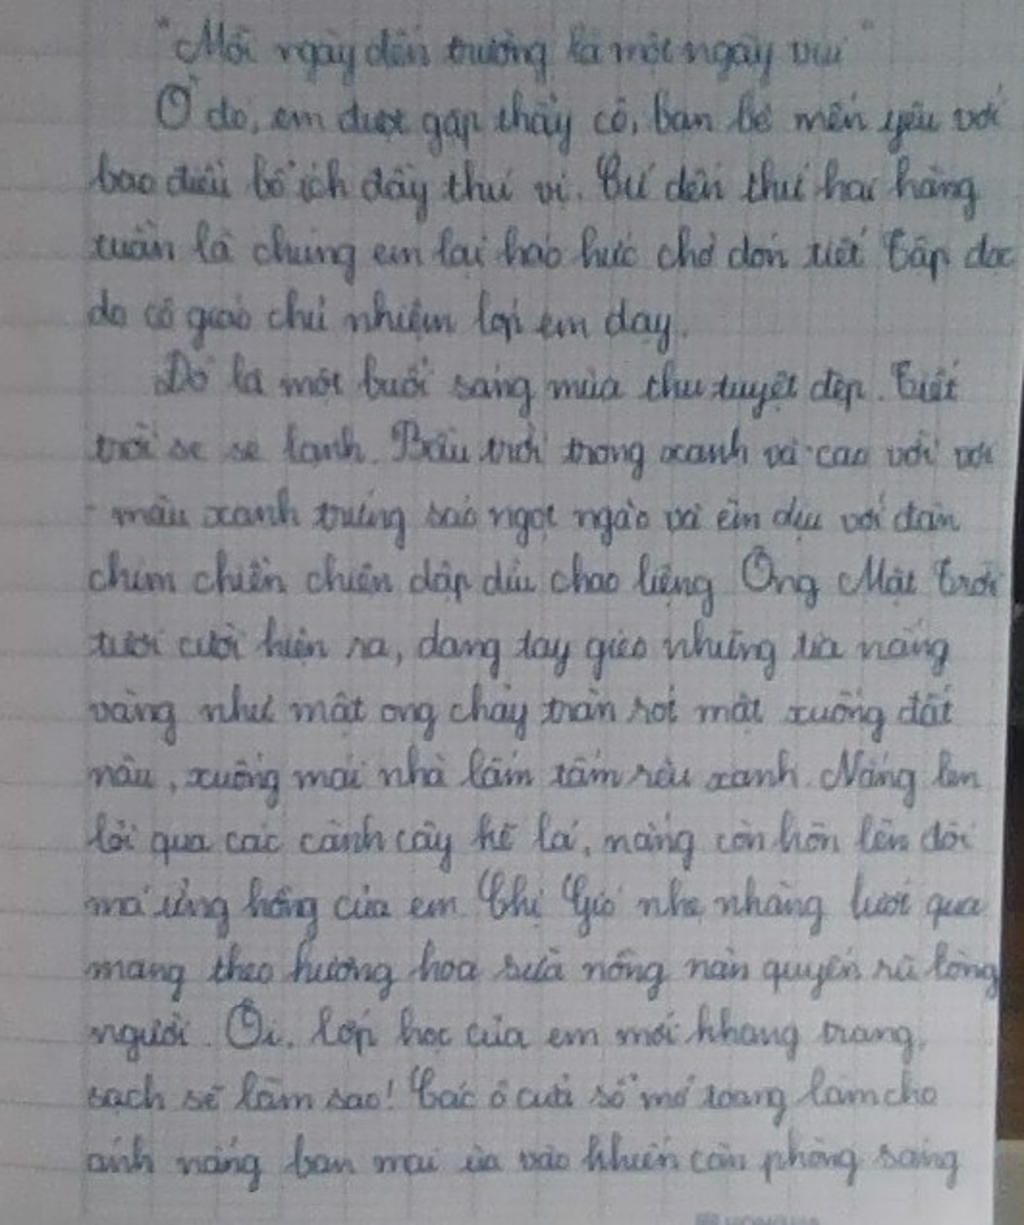 "Mỗi ngày đến trường là một ngày vui"
Ở đó, em được gặp thầy cô, bạn bè mến yêu với
bao điều bổ ích đầy thú vị. Cứ đến thứ hai hàng
tuần là chúng em lại háo hức chờ đón tiết Tập đọc
do cô giáo chủ nhiệm lớp em dạy.
Đó là một buổi sáng mùa thu tuyệt đẹp. Tiết
trời se se lạnh. Bầu trời trong xanh và cao vời vợi
màu xanh trứng sáo ngọt ngào và êm dịu với đàn
chim chiền chiện dập dìu chao liệng Ông Mặt Trời
tươi cười hiện ra, dang tay gieo những tia nắng
vàng như mật ong chảy tràn rót mật xuống đất
nâu, xuống mái nhà lấm tấm rêu xanh. Nắng len
lỏi qua các cành cây kẽ lá, nàng còn hôn lên đôi
má ửng hồng của em Chị Gió nhẹ nhàng lướt qua
mang theo hương hoa sữa nồng nàn quyến rũ lòng
người. Ôi, lớp học của em mới khang trang,
sạch sẽ làm sao! Các ô cửa sổ mở toang làm cho
ánh nắng ban mai ùa vào khiến căn phòng sáng